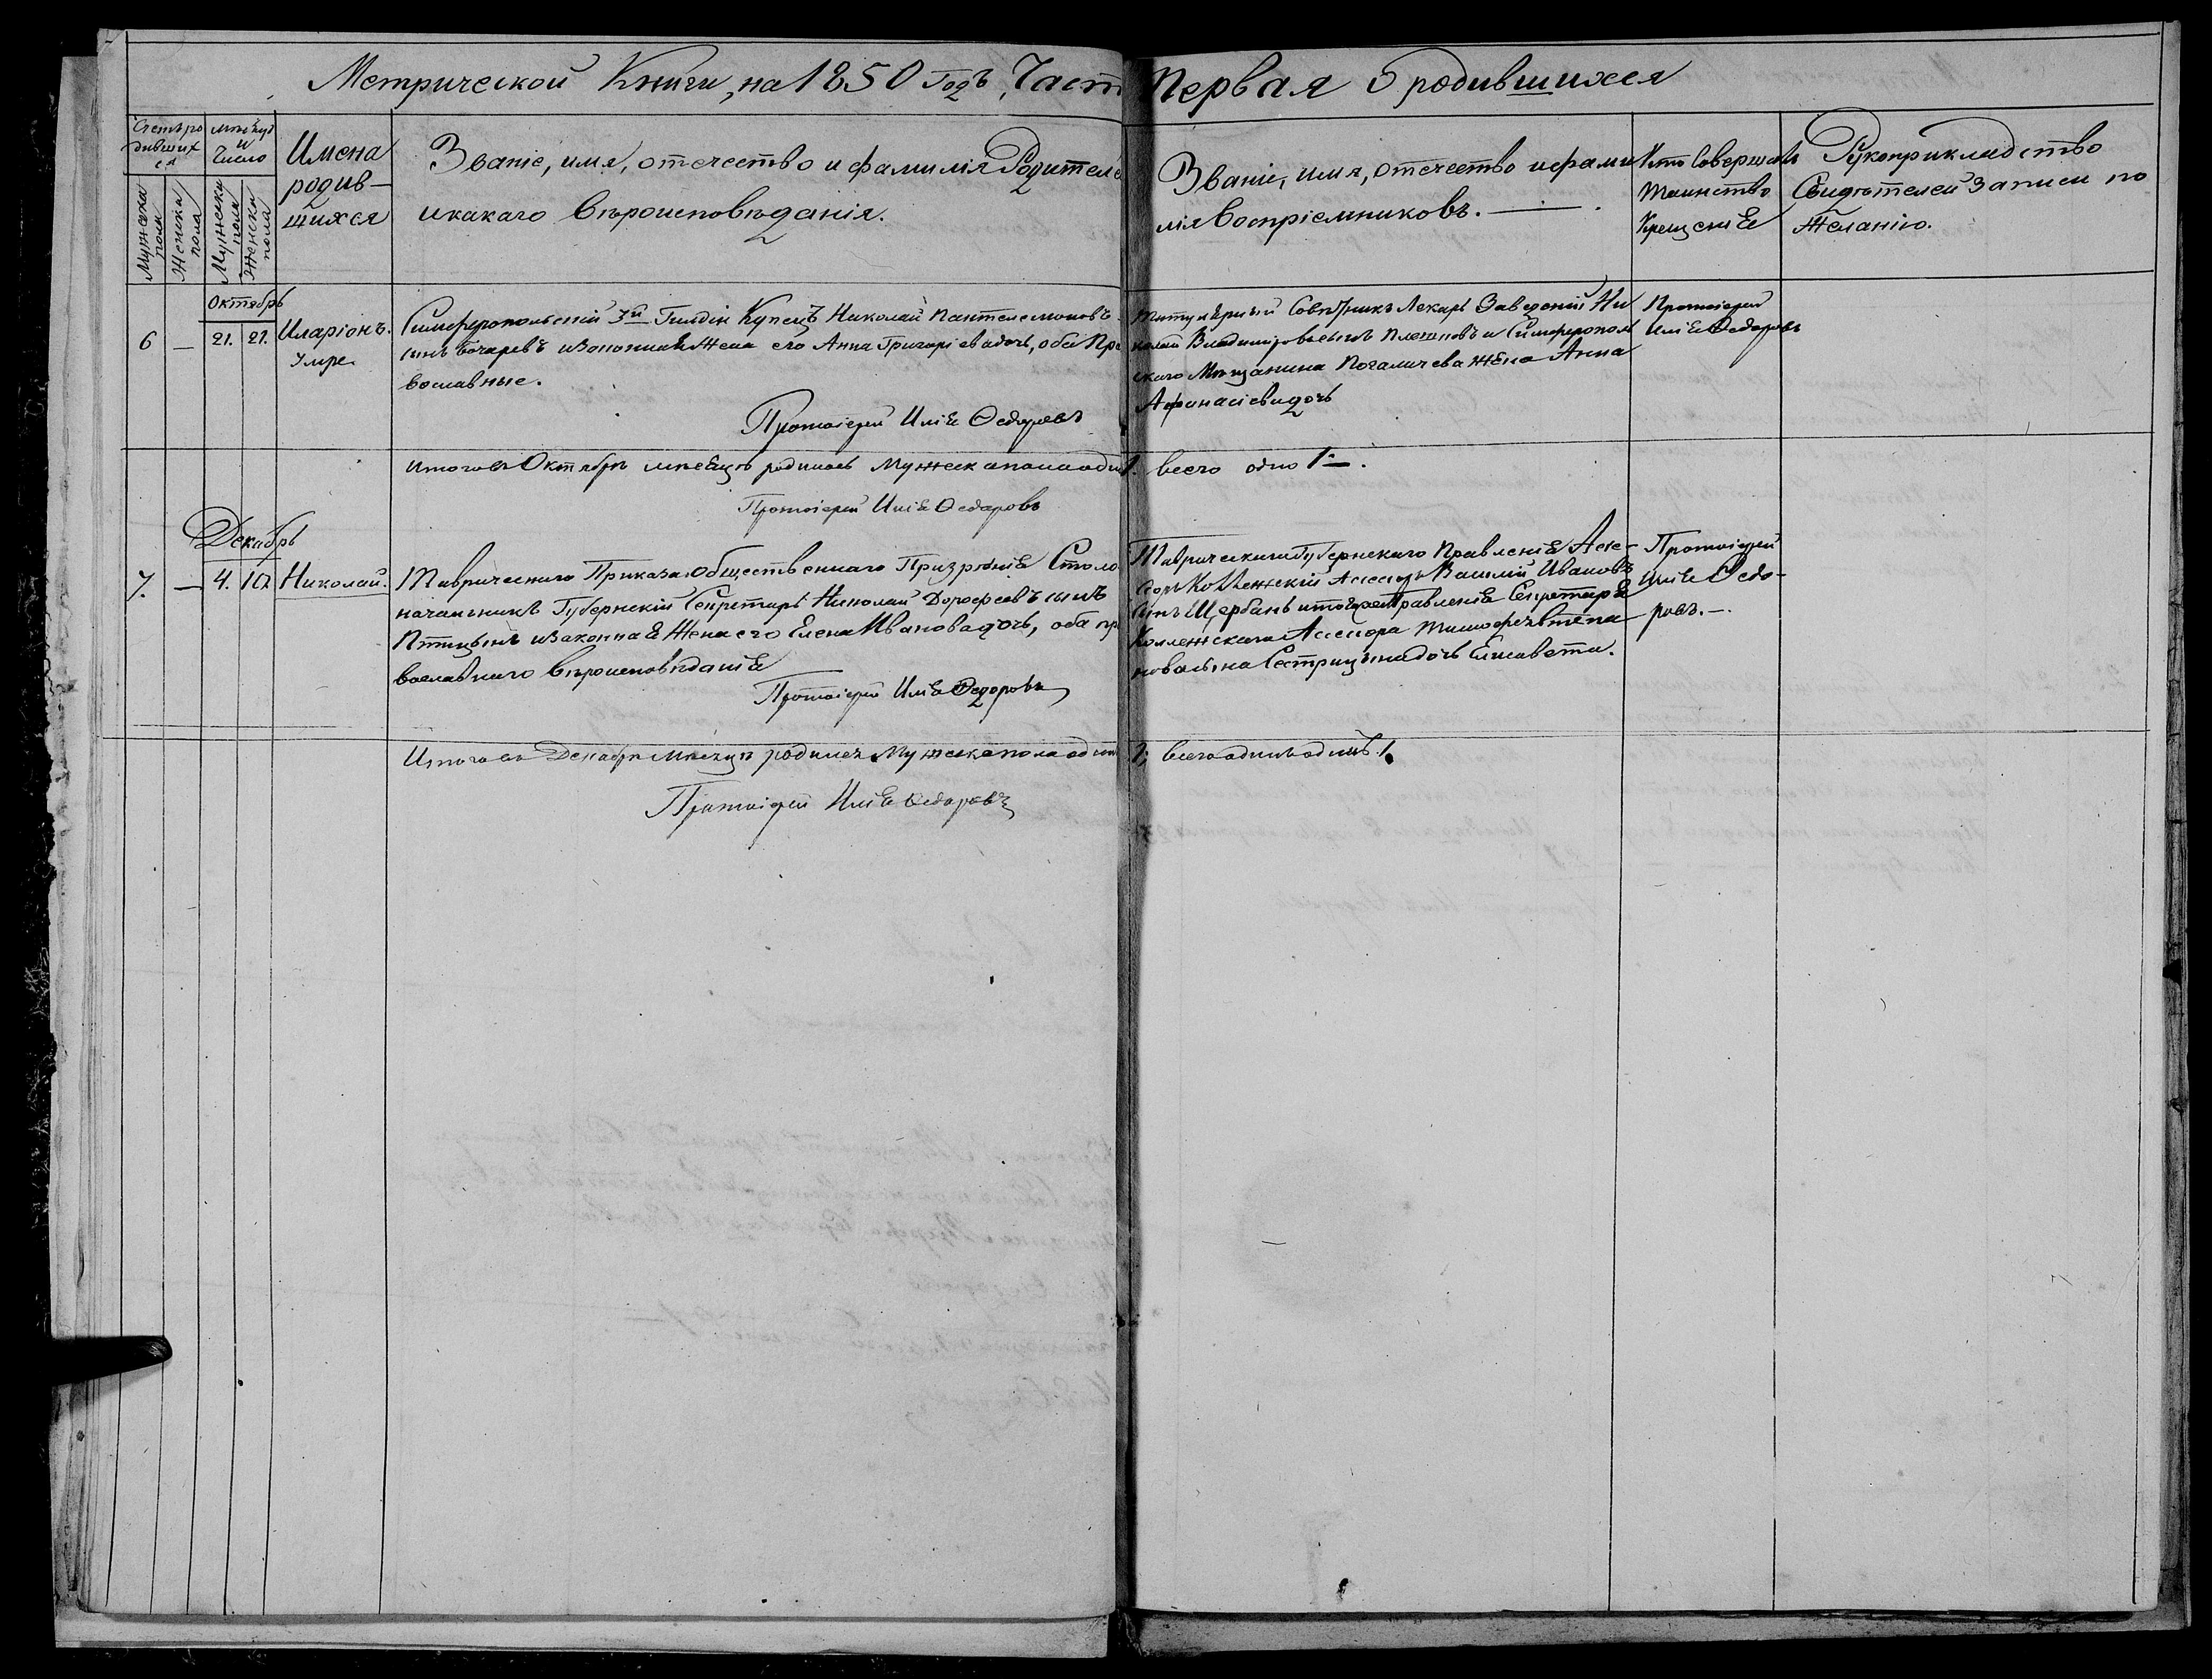 Метрической Книги, на 1850 Годъ, Часть Первая О родившихся
Счетъ родившихся
мѣсяцъ и Число
Мужеска пола
Женска пола
Мужеска пола
Женска пола
Имена родив-
шихся
Званіе, имя, отечество и фамилія Родителе
и какаго Вѣроисповѣданія.
Званіе, имя, отечество и фами
лія Воспріемниковъ.
Кто Совершалъ
таинство
Крещенія
Рукоприкладство
Свидѣтелей Записи по
Желанію.
Октябрь
6 — 21. 21. Иларіонъ.
Умре
Симферопольскій 3й Гилдіи Купецъ Николай Пантелемоновъ
сынъ Бочаревъ и Законная Жена его Анна Григоріева дочь, оба Пра
вославные.
Протоіерей Илія Федоровъ
Титулярный Совѣтникъ Лекарь Заведеній Ни
колай Владиміровъ сынъ и Симферополь
скаго Мѣщанина Жена Анна
Афонасіева дочь
Протоіерей
Илія Федоровъ
Итого въ Октябрѣ мѣсяцѣ родилось Мужеска пола один 1. всего одно 1.
Протоіерей Илія Федоровъ
Декабрь
7. — 4. 10. Николай.
Таврическаго Приказа Общественнаго Призрѣнія Столо
начальникъ Губернскій Секретарь Николай Дорофеевъ сынъ
Птицынъ и Законная Жена его Елена Иванова дочь, оба пр
вославнаго Вѣроисповѣданія
Протоіерей Илія Федоровъ
Таврическаго Губернскаго Правленія Ассе-
соръ Коллежскій Ассесоръ Василій Ивановъ
Сынъ Щербань и того же Правленія Секретаря
Коллежскаго Ассесора
дочь Елисавета.
Протоіерей
Илія Федо-
ровъ.
Итого въ Декабрѣ Мѣсяцѣ родился Мужеска пола один 1; всего одинъ 1.
Протоіерей Илія Федоровъ